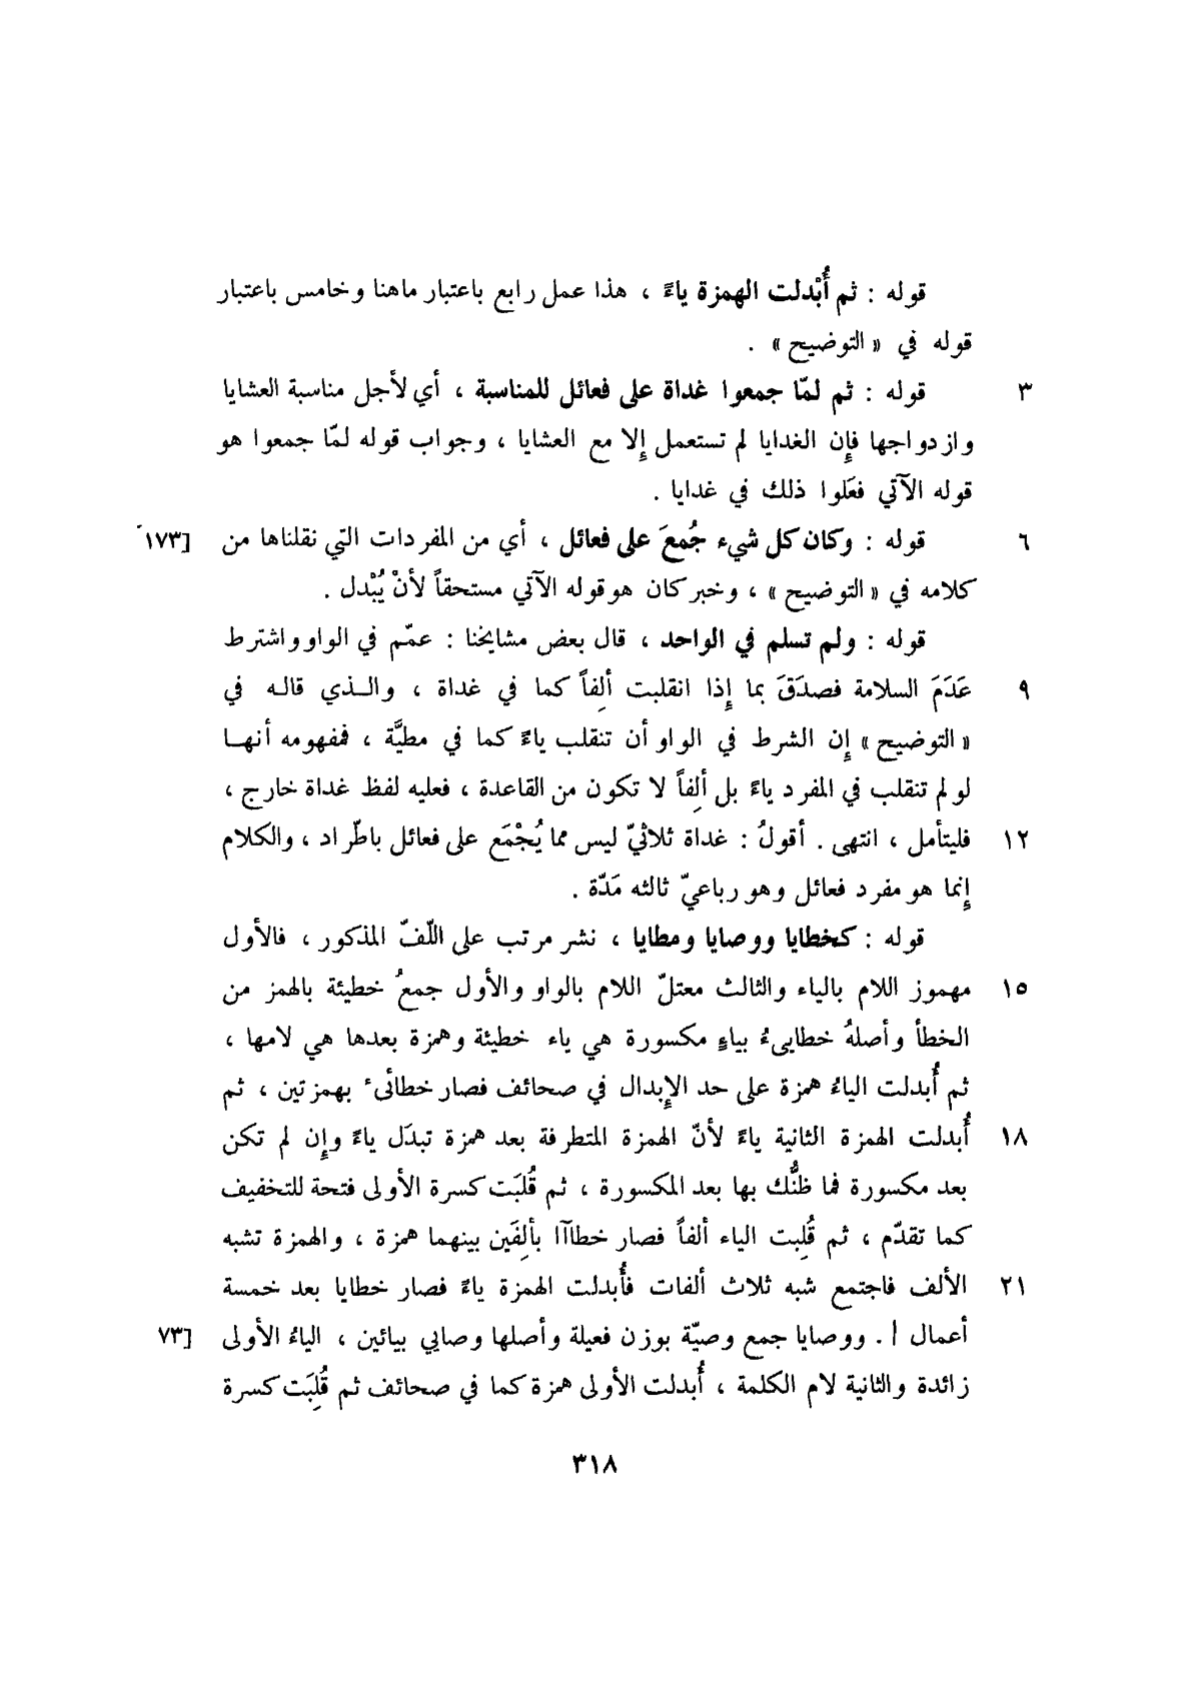 قوله : ثم أُبْدلت الهمزة ياءً ، هذا عمل رابع باعتبار ماهنا وخامس باعتبار
قوله في « التوضيح » .
٣ قوله : ثم لمّا جمعوا غداة على فعائل للمناسبة ، أي لأجل مناسبة العشايا
وازدواجها فإن الغدايا لم تستعمل إلا مع العشايا ، وجواب قوله لمّا جمعوا هو
قوله الآتي فعَلوا ذلك في غدايا .
٦ قوله : وكان كل شيء جُمعَ على فعائل ، أي من المفردات التي نقلناها من [١٧٣
كلامه في « التوضيح » ، وخبر كان هو قوله الآتي مستحقاً لأنْ يُبْدل .
قوله : ولم تسلم في الواحد ، قال بعض مشايخنا : عمّم في الواو واشترط
٩ عَدَمَ السلامة فصدَقَ بما إذا انقلبت ألِفاً كما في غداة ، والـذي قالـه في
« التوضيح » إن الشرط في الواو أن تنقلب ياءً كما في مطيَّة ، فمفهومه أنهـا
لو لم تنقلب في المفرد ياءً بل ألِفاً لا تكون من القاعدة ، فعليه لفظ غداة خارج ،
١٢ فليتأمل ، انتهى . أقولُ : غداة ثلاثيّ ليس مما يُجْمَع على فعائل باطّراد ، والكلام
إنما هو مفرد فعائل وهو رباعيّ ثالثه مَدّة .
قوله : كخطايا ووصايا ومطايا ، نشر مرتب على اللّفّ المذكور ، فالأول
١٥ مهموز اللام بالياء والثالث معتلّ اللام بالواو والأول جمعُ خطيئة بالهمز من
الخطأ وأصلهُ خطايىءُ بياءٍ مكسورة هي ياء خطيئة وهمزة بعدها هي لامها ،
ثم أُبدلت الياءُ همزة على حد الإبدال في صحائف فصار خطائىء بهمزتين ، ثم
١٨ أُبدلت الهمزة الثانية ياءً لأنّ الهمزة المتطرفة بعد همزة تبدَل ياءً وإن لم تكن
بعد مكسورة فما ظنُّك بها بعد المكسورة ، ثم قُلبَت كسرة الأولى فتحة للتخفيف
كما تقدّم ، ثم قُلِبت الياء ألفاً فصار خطاآا بألِفَين بينهما همزة ، والهمزة تشبه
٢١ الألف فاجتمع شبه ثلاث ألفات فأُبدلت الهمزة ياءً فصار خطايا بعد خمسة
أعمال | . ووصايا جمع وصيّة بوزن فعيلة وأصلها وصايي بيائين ، الياءُ الأولى [٧٣
زائدة والثانية لام الكلمة ، أُبدلت الأولى همزة كما في صحائف ثم قُلِبَت كسرة
٣١٨